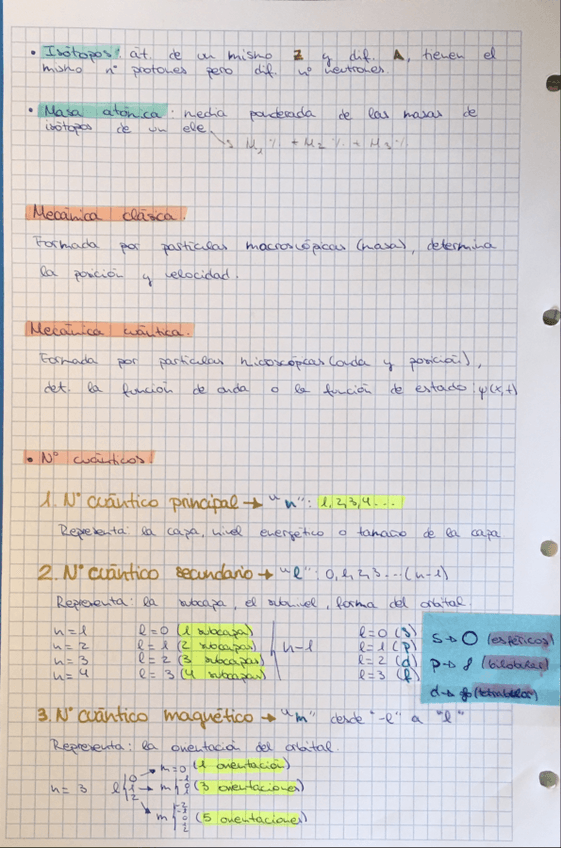 • Isótopos: át. de un mismo Z y dif. A, tienen el
mismo nº protones pero dif. nº neutrones.
• Masa atómica: media ponderada de las masas de
isótopos de un ele.
M₁% + M₂% + M₃%
Mecánica clásica.
Formada por partículas macroscópicas (masa), determina
la posición y velocidad.
Mecánica cuántica.
Formada por partículas micoscópicas (onda y posición),
det. la función de onda o la función de estado: ψ(x,t)
• Nº cuánticos:
1. Nº cuántico principal → "n": 1,2,3,4...
Representa: la capa, nivel energético o tamaño de la capa
2. Nº cuántico secundario → "l": 0,1,2,3...(n-1)
Representa: la subcapa, el subnivel, forma del orbital.
n=1 l=0 (1 subcapa) l=0 (s)
n=2 l=1 (2 subcapas) n-1 l=1 (p)
n=3 l=2 (3 subcapas) l=2 (d)
n=4 l=3 (4 subcapas) l=3 (f)
s→ (esféricos)
p→ (bilobular)
d→ (tetralobular)
3. Nº cuántico magnético → "m" desde "-l" a "l"
Representa: la orientación del orbital.
0 → m=0 (1 orientación)
n=3 l 1 → m -1 0 1 (3 orientaciones)
2 → m -2 -1 0 1 2 (5 orientaciones)